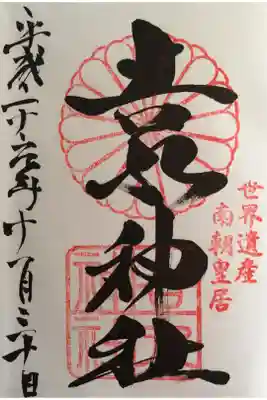 世界遺産
南朝皇居
吉水神社
平成二十六年十一月三十日